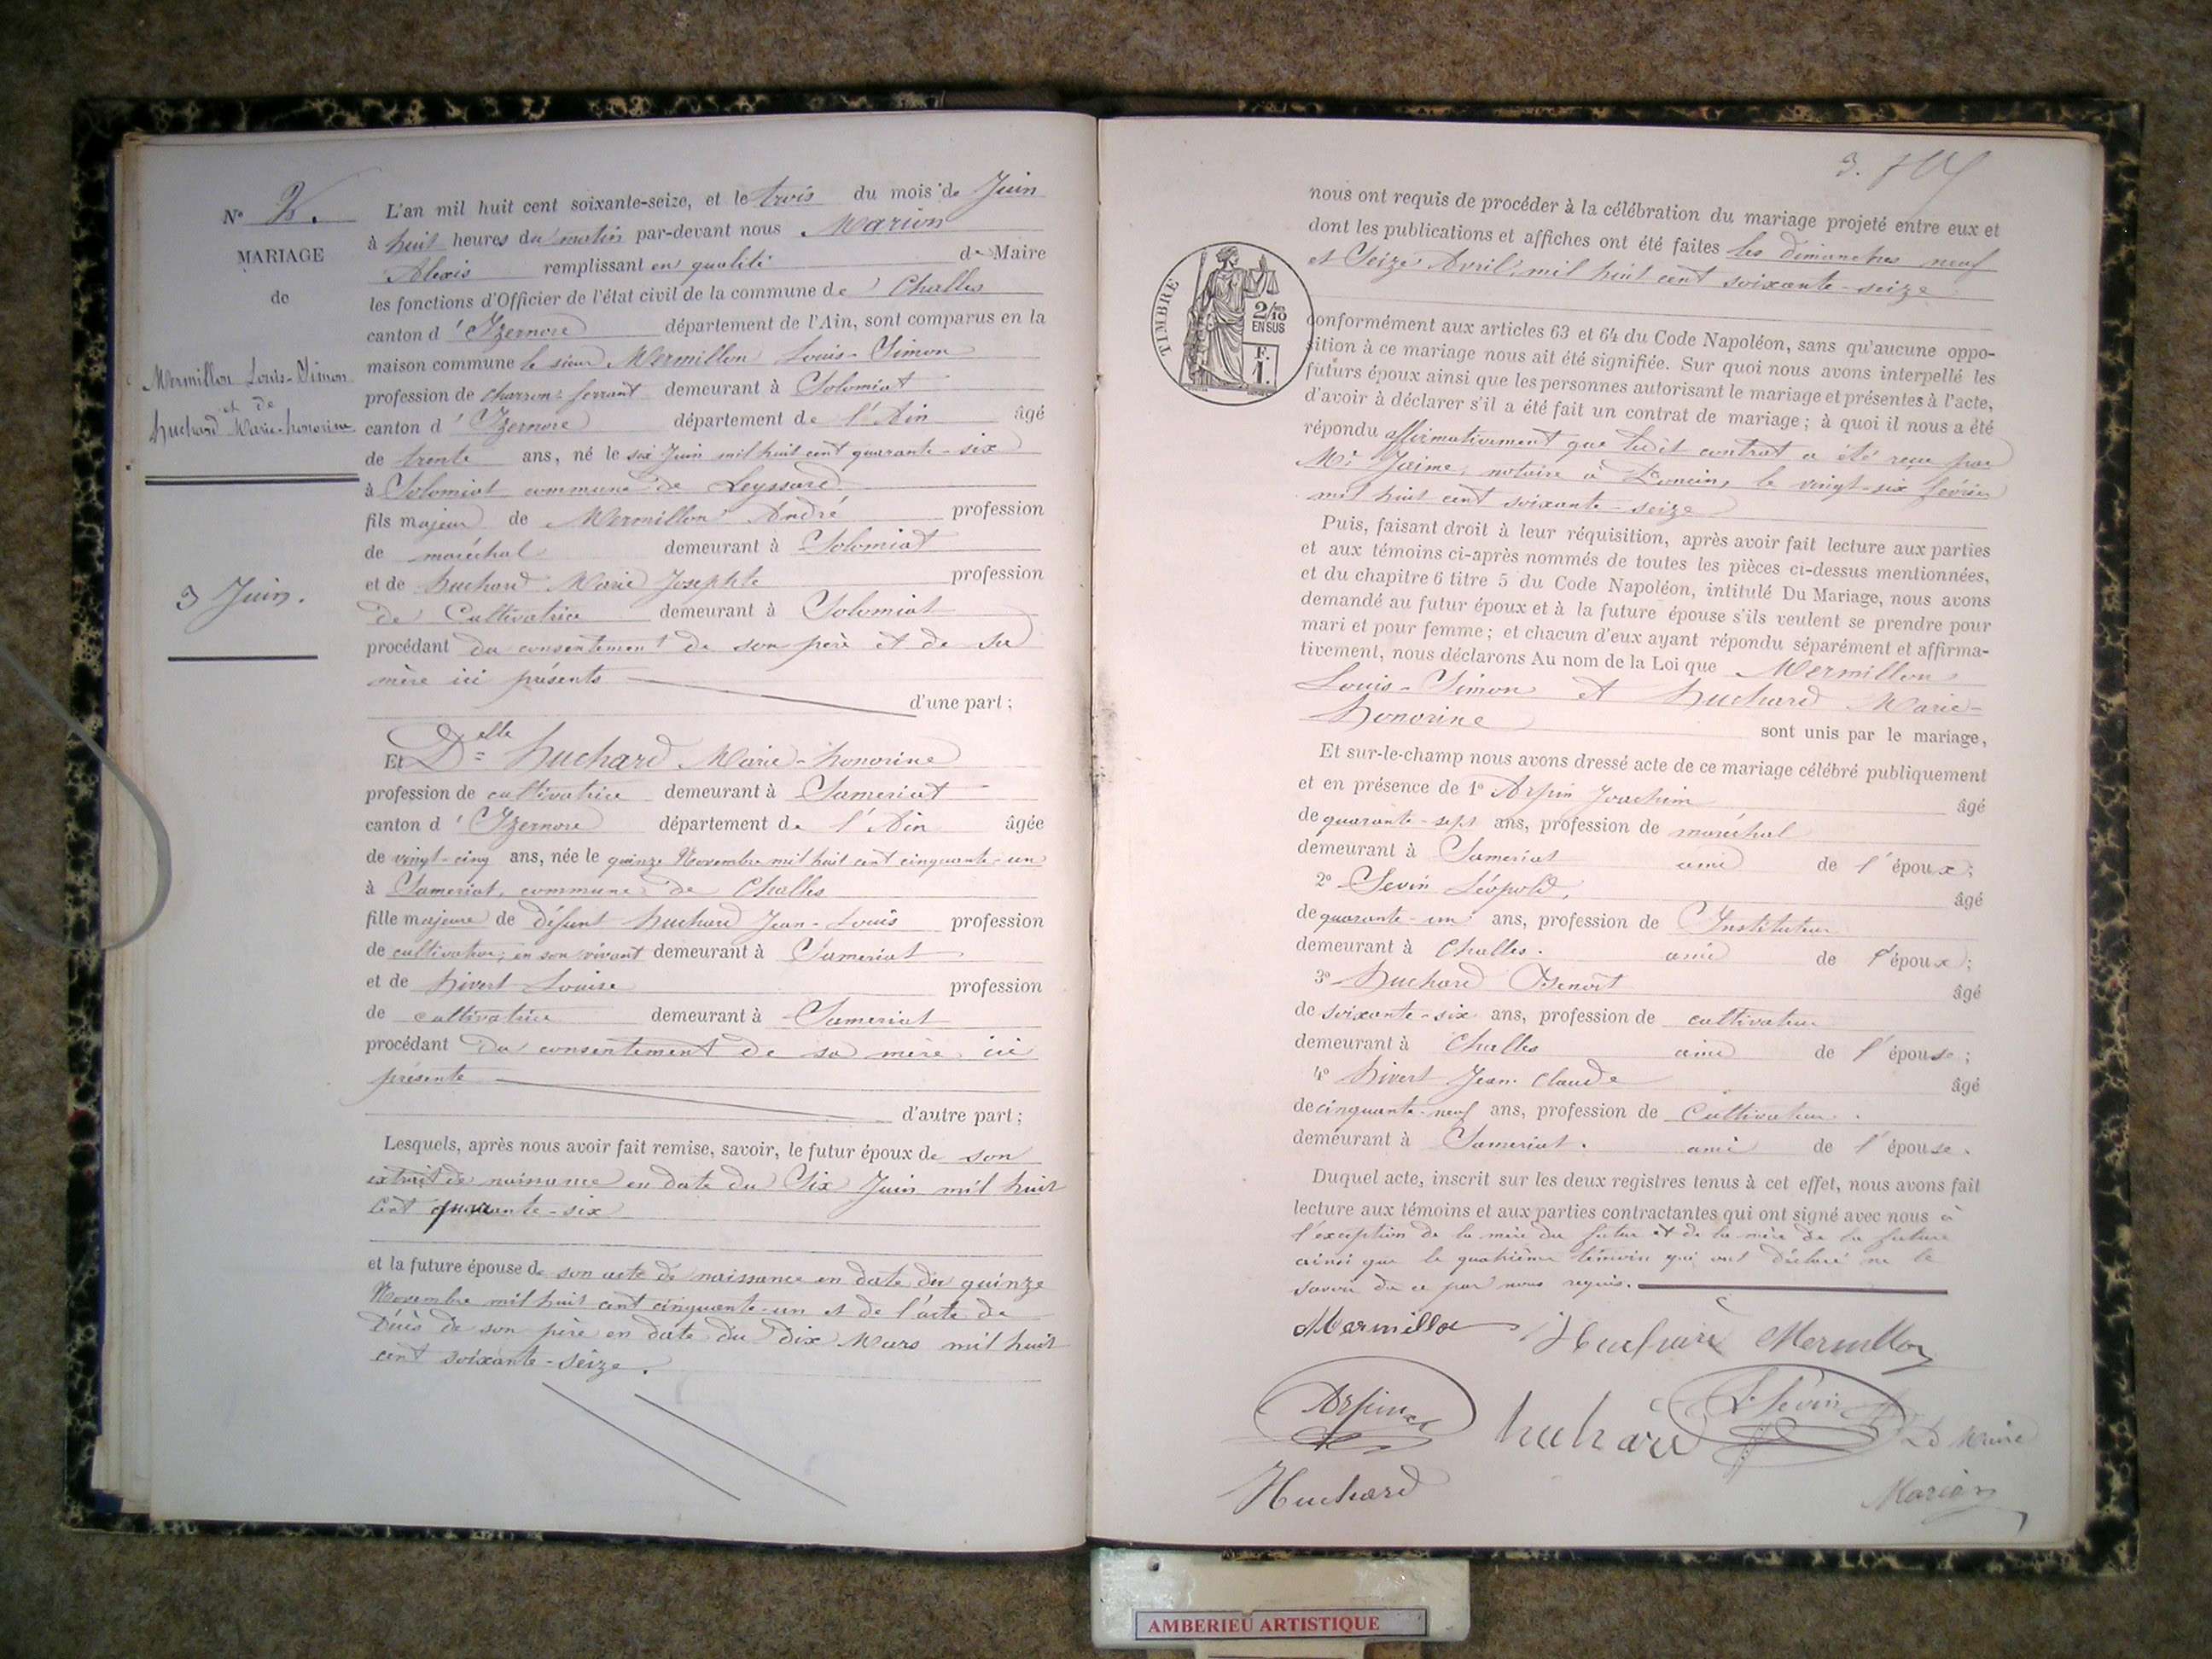 N° 2.
MARIAGE
de
Mermillon Louis-Simon
et de
huchard Marie-honorine
3 Juin.
L'an mil huit cent soixante-seize, et le trois du mois de Juin
à huit heures du matin par-devant nous Marion
Alexis remplissant en qualité de Maire
les fonctions d'Officier de l'état civil de la commune de Challes
canton d'Izernore département de l'Ain, sont comparus en la
maison commune le sieur Mermillon Louis-Simon
profession de charron-ferrant demeurant à Solomiat
canton d'Izernore département de l'Ain âgé
de trente ans, né le six Juin mil huit cent quarante-six
à Solomiat commune de Leyssard
fils majeur de Mermillon André profession
de maréchal demeurant à Solomiat
et de huchard Marie Josephte profession
de Cultivatrice demeurant à Solomiat
procédant du consentement de son père et de sa
mère ici présents
d'une part;
Et Delle huchard Marie-honorine
profession de cultivatrice demeurant à Sameriat
canton d'Izernore département de l'Ain âgée
de vingt-cinq ans, née le quinze Novembre mil huit cent cinquante-un
à Sameriat, commune de Challes
fille majeure de défunt huchard Jean-Louis profession
de cultivateur, en son vivant demeurant à Sameriat
et de hivert Louise profession
de cultivatrice demeurant à Sameriat
procédant du consentement de sa mère ici
présente
d'autre part;
Lesquels, après nous avoir fait remise, savoir, le futur époux de son
extrait de naissance en date du Six Juin mil huit
cent quarante-six
et la future épouse de son acte de naissance en date du quinze
Novembre mil huit cent cinquante-un et de l'acte de
Décès de son père en date du Dix Mars mil huit
cent soixante-seize.
3.
nous ont requis de procéder à la célébration du mariage projeté entre eux et
dont les publications et affiches ont été faites les dimanches neuf
et Seize Avril mil huit cent soixante-seize
TIMBRE
2/10
EN SUS
F.
1.
conformément aux articles 63 et 64 du Code Napoléon, sans qu'aucune oppo-
sition à ce mariage nous ait été signifiée. Sur quoi nous avons interpellé les
futurs époux ainsi que les personnes autorisant le mariage et présentes à l'acte,
d'avoir à déclarer s'il a été fait un contrat de mariage; à quoi il nous a été
répondu affirmativement que ledit contrat a été reçu par
Me Jaime, notaire à le vingt-six février
mil huit cent soixante-seize
Puis, faisant droit à leur réquisition, après avoir fait lecture aux parties
et aux témoins ci-après nommés de toutes les pièces ci-dessus mentionnées,
et du chapitre 6 titre 5 du Code Napoléon, intitulé Du Mariage, nous avons
demandé au futur époux et à la future épouse s'ils veulent se prendre pour
mari et pour femme; et chacun d'eux ayant répondu séparément et affirma-
tivement, nous déclarons Au nom de la Loi que Mermillon
Louis-Simon et huchard Marie-
honorine sont unis par le mariage,
Et sur-le-champ nous avons dressé acte de ce mariage célébré publiquement
et en présence de 1° Arpin Joachim âgé
de quarante-sept ans, profession de maréchal
demeurant à Sameriat ami de l'époux;
2° Sevin Léopold, âgé
de quarante-un ans, profession de Instituteur
demeurant à Challes. ami de l'époux;
3° huchard Benoît âgé
de soixante-six ans, profession de cultivateur
demeurant à Challes ami de l'épouse;
4° hivert Jean-Claude âgé
de cinquante-neuf ans, profession de Cultivateur.
demeurant à Sameriat. ami de l'épouse.
Duquel acte, inscrit sur les deux registres tenus à cet effet, nous avons fait
lecture aux témoins et aux parties contractantes qui ont signé avec nous à
l'exception de la mère du futur et de la mère de la future
ainsi que le quatrième témoin qui ont déclaré ne le
savoir de ce par nous requis.
Mermillon Huchard Mermillon
Arpin huchard L. Sevin Le Maire
Huchard Marion
AMBERIEU ARTISTIQUE